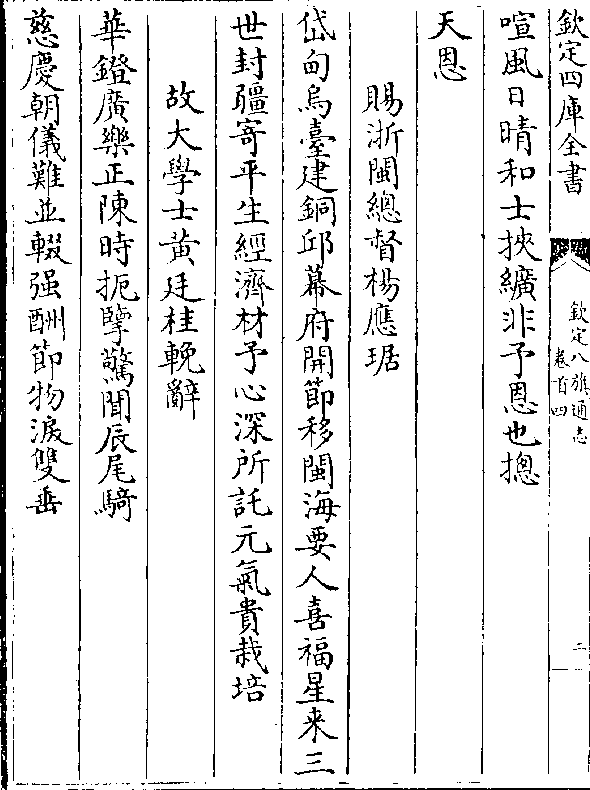 欽定四庫全書
欽定八旗通志
卷首四
二
喧風日晴和士挾纊非予恩也摠
天恩
賜浙閩總督楊應琚
岱甸烏臺建銅邱幕府開節移閩海要人喜福星来三
世封疆寄平生經濟材予心深所託元氣貴栽培
故大學士黄廷桂輓辭
華鐙廣樂正陳時扼孽驚聞辰尾騎
慈慶朝儀難並輟强酬節物淚雙垂